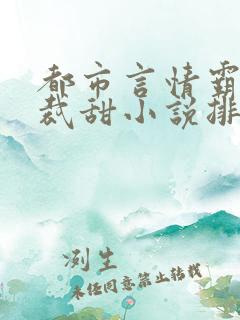 都市言情霸
裁甜小说排
冽生
未经同意禁止转载